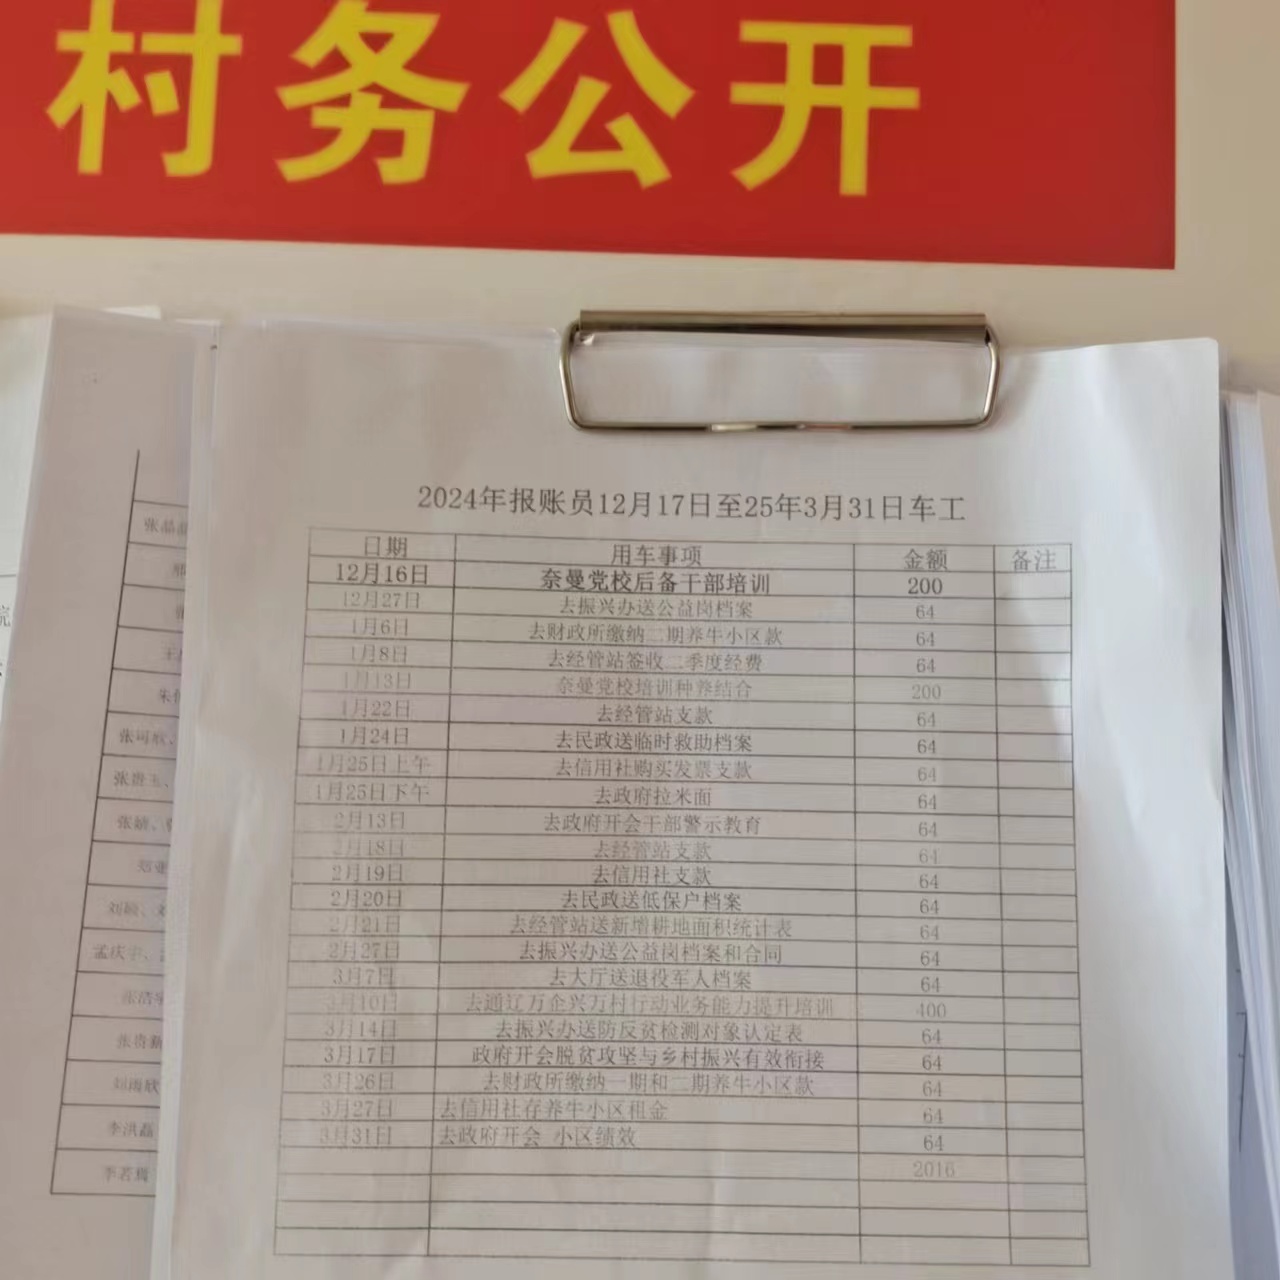 村务公开
2024年报账员12月17日至25年3月31日车工
日期 用车事项 金额 备注
12月16日 奈曼党校后备干部培训 200
12月27日 去振兴办送公益岗档案 64
1月6日 去财政所缴纳二期养牛小区款 64
1月8日 去经管站签收二季度经费 64
1月13日 奈曼党校培训种养结合 200
1月22日 去经管站支款 64
1月24日 去民政送临时救助档案 64
1月25日上午 去信用社购买发票支款 64
1月25日下午 去政府拉米面 64
2月13日 去政府开会干部警示教育 64
2月18日 去经管站支款 64
2月19日 去信用社支款 64
2月20日 去民政送低保户档案 64
2月21日 去经管站送新增耕地面积统计表 64
2月27日 去振兴办送公益岗档案和合同 64
3月7日 去大厅送退役军人档案 64
3月10日 去通辽万企兴万村行动业务能力提升培训 400
3月14日 去振兴办送防反贫检测对象认定表 64
3月17日 政府开会脱贫攻坚与乡村振兴有效衔接 64
3月26日 去财政所缴纳一期和二期养牛小区款 64
3月27日 去信用社存养牛小区租金 64
3月31日 去政府开会 小区绩效 64
2016